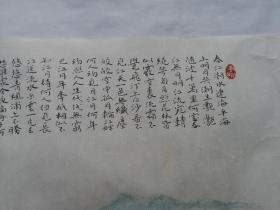 春江潮水連海平海
上明月共潮生灩灩
隨波千萬里何處春
江無月明江流宛轉
繞芳甸月照花林皆
似霰空裏流霜不
覺飛汀上白沙看不
見江天一色無纖塵
皎皎空中孤月輪江畔
何人初見月江月何年
初照人人生代代無窮
已江月年年望相似不
知江月待何人但見長
江送流水白雲一片去
悠悠青楓浦上不勝
愁誰家今夜扁舟